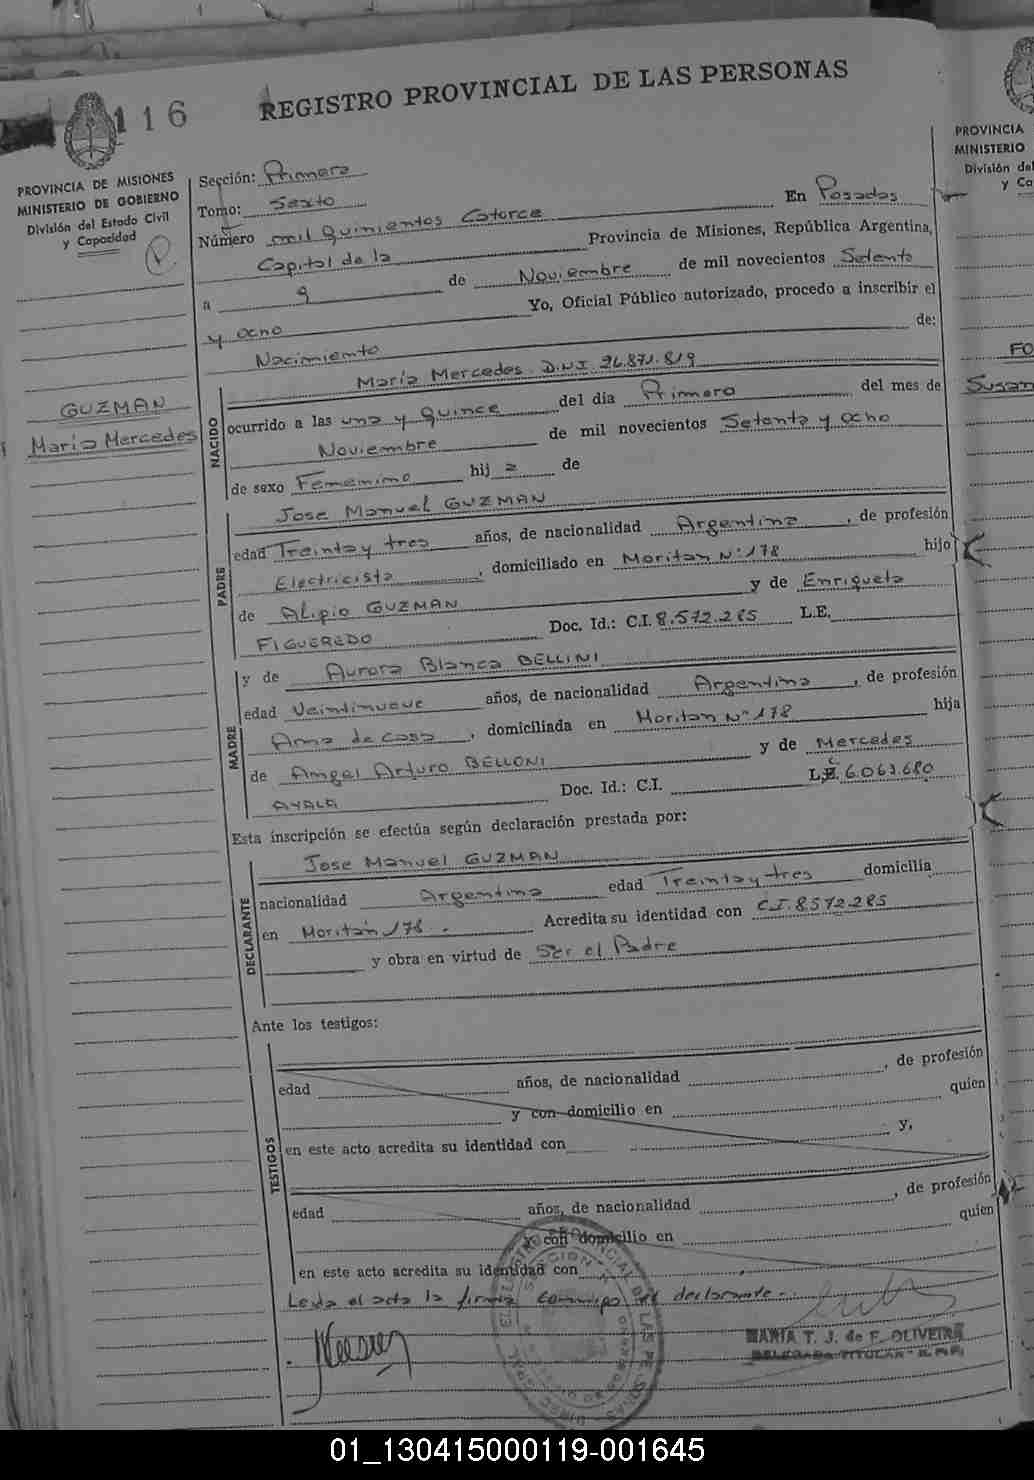 116
REGISTRO PROVINCIAL DE LAS PERSONAS
PROVINCIA DE MISIONES
MINISTERIO DE GOBIERNO
División del Estado Civil
y Capacidad
GUZMAN
María Mercedes
Sección: Primera
Tomo: Sexto En Posadas
Número mil Quinientos Catorce
Capital de la Provincia de Misiones, República Argentina,
a 9 de Noviembre de mil novecientos Setenta
y ocho Yo, Oficial Público autorizado, procedo a inscribir el
Nacimiento de:
NACIDO
María Mercedes D.N.I. 26.871.819
ocurrido a las una y Quince del día Primero del mes de
Noviembre de mil novecientos Setenta y ocho
de sexo Femenino hij a de
PADRE
Jose Manuel GUZMAN
edad Treinta y tres años, de nacionalidad Argentina, de profesión
Electricista, domiciliado en Moritan Nº 178 hijo
de Alipio GUZMAN y de Enriqueta
FIGUEREDO Doc. Id.: C.I. 8.572.285 L.E.
MADRE
y de Aurora Blanca BELLINI
edad Veintinueve años, de nacionalidad Argentina, de profesión
Ama de casa, domiciliada en Moritan Nº 178 hija
de Angel Arturo BELLONI y de Mercedes
AYALA Doc. Id.: C.I. L.C. 6.063.680
Esta inscripción se efectúa según declaración prestada por:
DECLARANTE
Jose Manuel GUZMAN
nacionalidad Argentina edad Treinta y tres domicilia
en Moritán 178. Acredita su identidad con C.I. 8572285
y obra en virtud de Ser el Padre
Ante los testigos:
TESTIGOS
edad años, de nacionalidad , de profesión
y con domicilio en quien
en este acto acredita su identidad con y,
edad años, de nacionalidad , de profesión
y con domicilio en quien
en este acto acredita su identidad con
Leida el acta la firma conmigo el declarante.-
MARIA T. J. de F. OLIVEIRA
DELEGADA TITULAR
PROVINCIA
MINISTERIO
División del
y Ca
FO
Susan
01_130415000119-001645